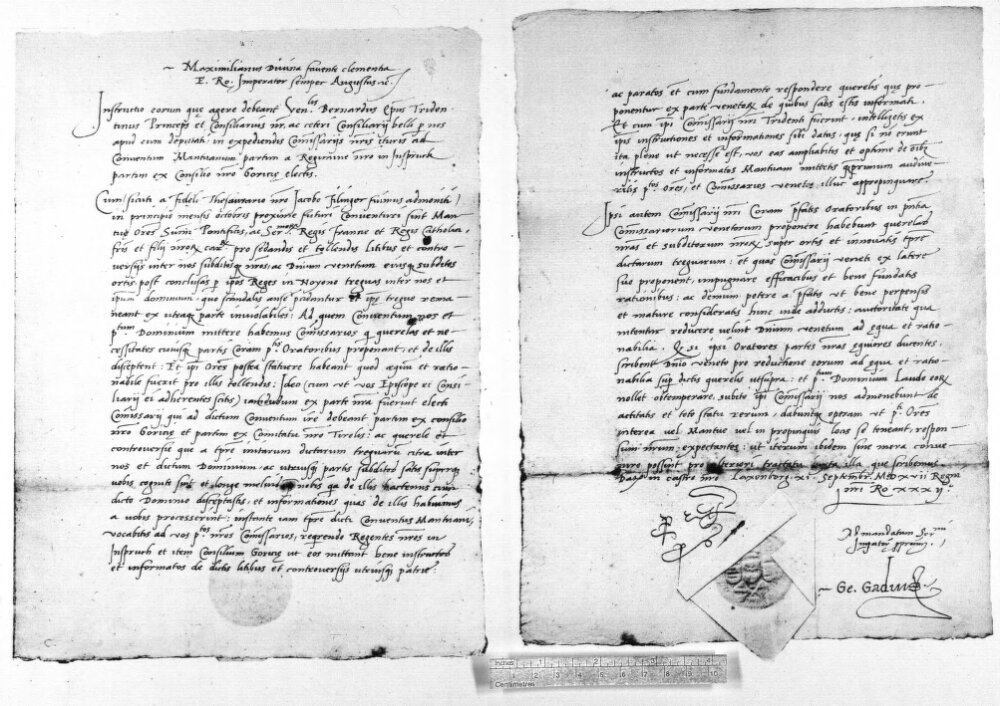 Maximilianus Divina favente clementia
E. Ro. Imperator semper Augustus &c.
Instructio eorum que agere debeant Ven.lis Bernardus Eps Triden-
tinus Princeps et Consiliarius nr, ac ceteri Consiliarij belli p nos
apud eum deputati in expediendis Comissarijs nris ituris ad
Conventum Mantuanum partim a Regimine nro in Inspruck
partim ex Consilio nro Goricie electis.
Cum sicuti a fideli Thesaurario nro Jacobo Filinger fuimus admoniti
in principio mensis octobris proxime futuri Conventuri sint Man-
tue Ores Sumi Pontificis, ac Ser.morum Regis Francie et Regis Catholici,
fris et filij nrorum car. pro sedandis et tollendis litibus et contro-
versijs inter nos subditosq nros, ac Dnium venetum eiusq subditos
ortis post conclusas p ipos Reges in Noyono treguas inter nos et
ipum dominium: quo scandalis ansa precidantur et ipe tregue rema-
neant ex utraq parte inviolabiles: Ad quem Conventum nos et
p.tum Dominium mittere habemus Comissarios q querelas et ne-
cessitates cuiusq partis coram p.tis Oratoribus proponant, et de illis
disceptent: Et ipi Ores postea statuere habeant quod equm et ratio-
nabile fuerit pro illis tollendis: Ideo (cum ut vos Episcope et Consi-
liarij ei adherentes scitis) iamdudum ex parte nra fuerint electi
Comissarij qui ad dictum Conventum ire debeant partim ex consilio
nro Goricie et partim ex Comitatu nro Tirolis: ac querele et
controversie que a tpre initarum dictarum treguarum citra inter
nos et dictum Dominium ac utriusq partis subditos satis superq
vobis cognite sint et longe melius nobis qa de illis hactenus cum
dicto Dominio disceptastis, et informationes quas de illis habuimus
a vobis processerint: instante iam tpre dicti Conventus Mantuani,
vocabitis ad vos p.tos nros Comissarios, requirendo Regentes nros in
Inspruch et item Consilium Goricie ut eos mittant bene instructos
et informatos de dictis litibus et controversijs utriusq partis:
ac paratos et cum fundamento respondere querelis que pro-
ponentur ex parte venetorum de quibus satis estis informati.
Et cum ipi Comissarij nri Tridenti fuerint intelligetis ex
ipis instructiones et informationes sibi datas, que si non erunt
ita plene ut necesse est, vos eas ampliabitis et optime de oibus
instructos et informatos Mantuam mittetis qprimum audive-
ritis p.tos Ores, et Comissarios venetos, illuc appropinquare.
Ipsi autem Comissarij nri Coram pfatis Oratoribus in pntia
Comissariorum venetorum proponere habebunt querelas
nras et subditorum nrorum super ortis et innovatis tpre
dictarum treguarum: et quas Comissarij veneti ex latere
suo proponent, impugnare efficacibus et bene fundatis
rationibus: ac demum petere a pfatis ut bene perpensis
et mature consideratis hinc inde adductis: autoritate qua
nituntur reducere velint Dnium venetum ad equa et ratio-
nabilia. Et si ipsi Oratores partes nras equiores ducentes,
scribent Dnio veneto pro reductione eorum ad equa et ratio-
nabilia sup dictis querelis utsupra: et p.tum Dominium Laudo eorum
nollet obtemperare, subito ipi Comissarij nos admonebunt de
actitatis et toto statu rerum, dabuntq operam ut p.ti Ores
interea vel Mantue vel in propinquis locis se teneant, respon-
sum nrum expectantes: ut iterum ibidem sine mora conve-
nire possint pro ulteriori tractatu iuxta illa que scribemus
Dat in castro nro Loxenborg. xi. Septembr. M.D.xvii Regni
nri Ro xxxij.
Ad mandatum Ser.mi
Impator. pprium.
Ge. Gadius
Inches
Centimetres